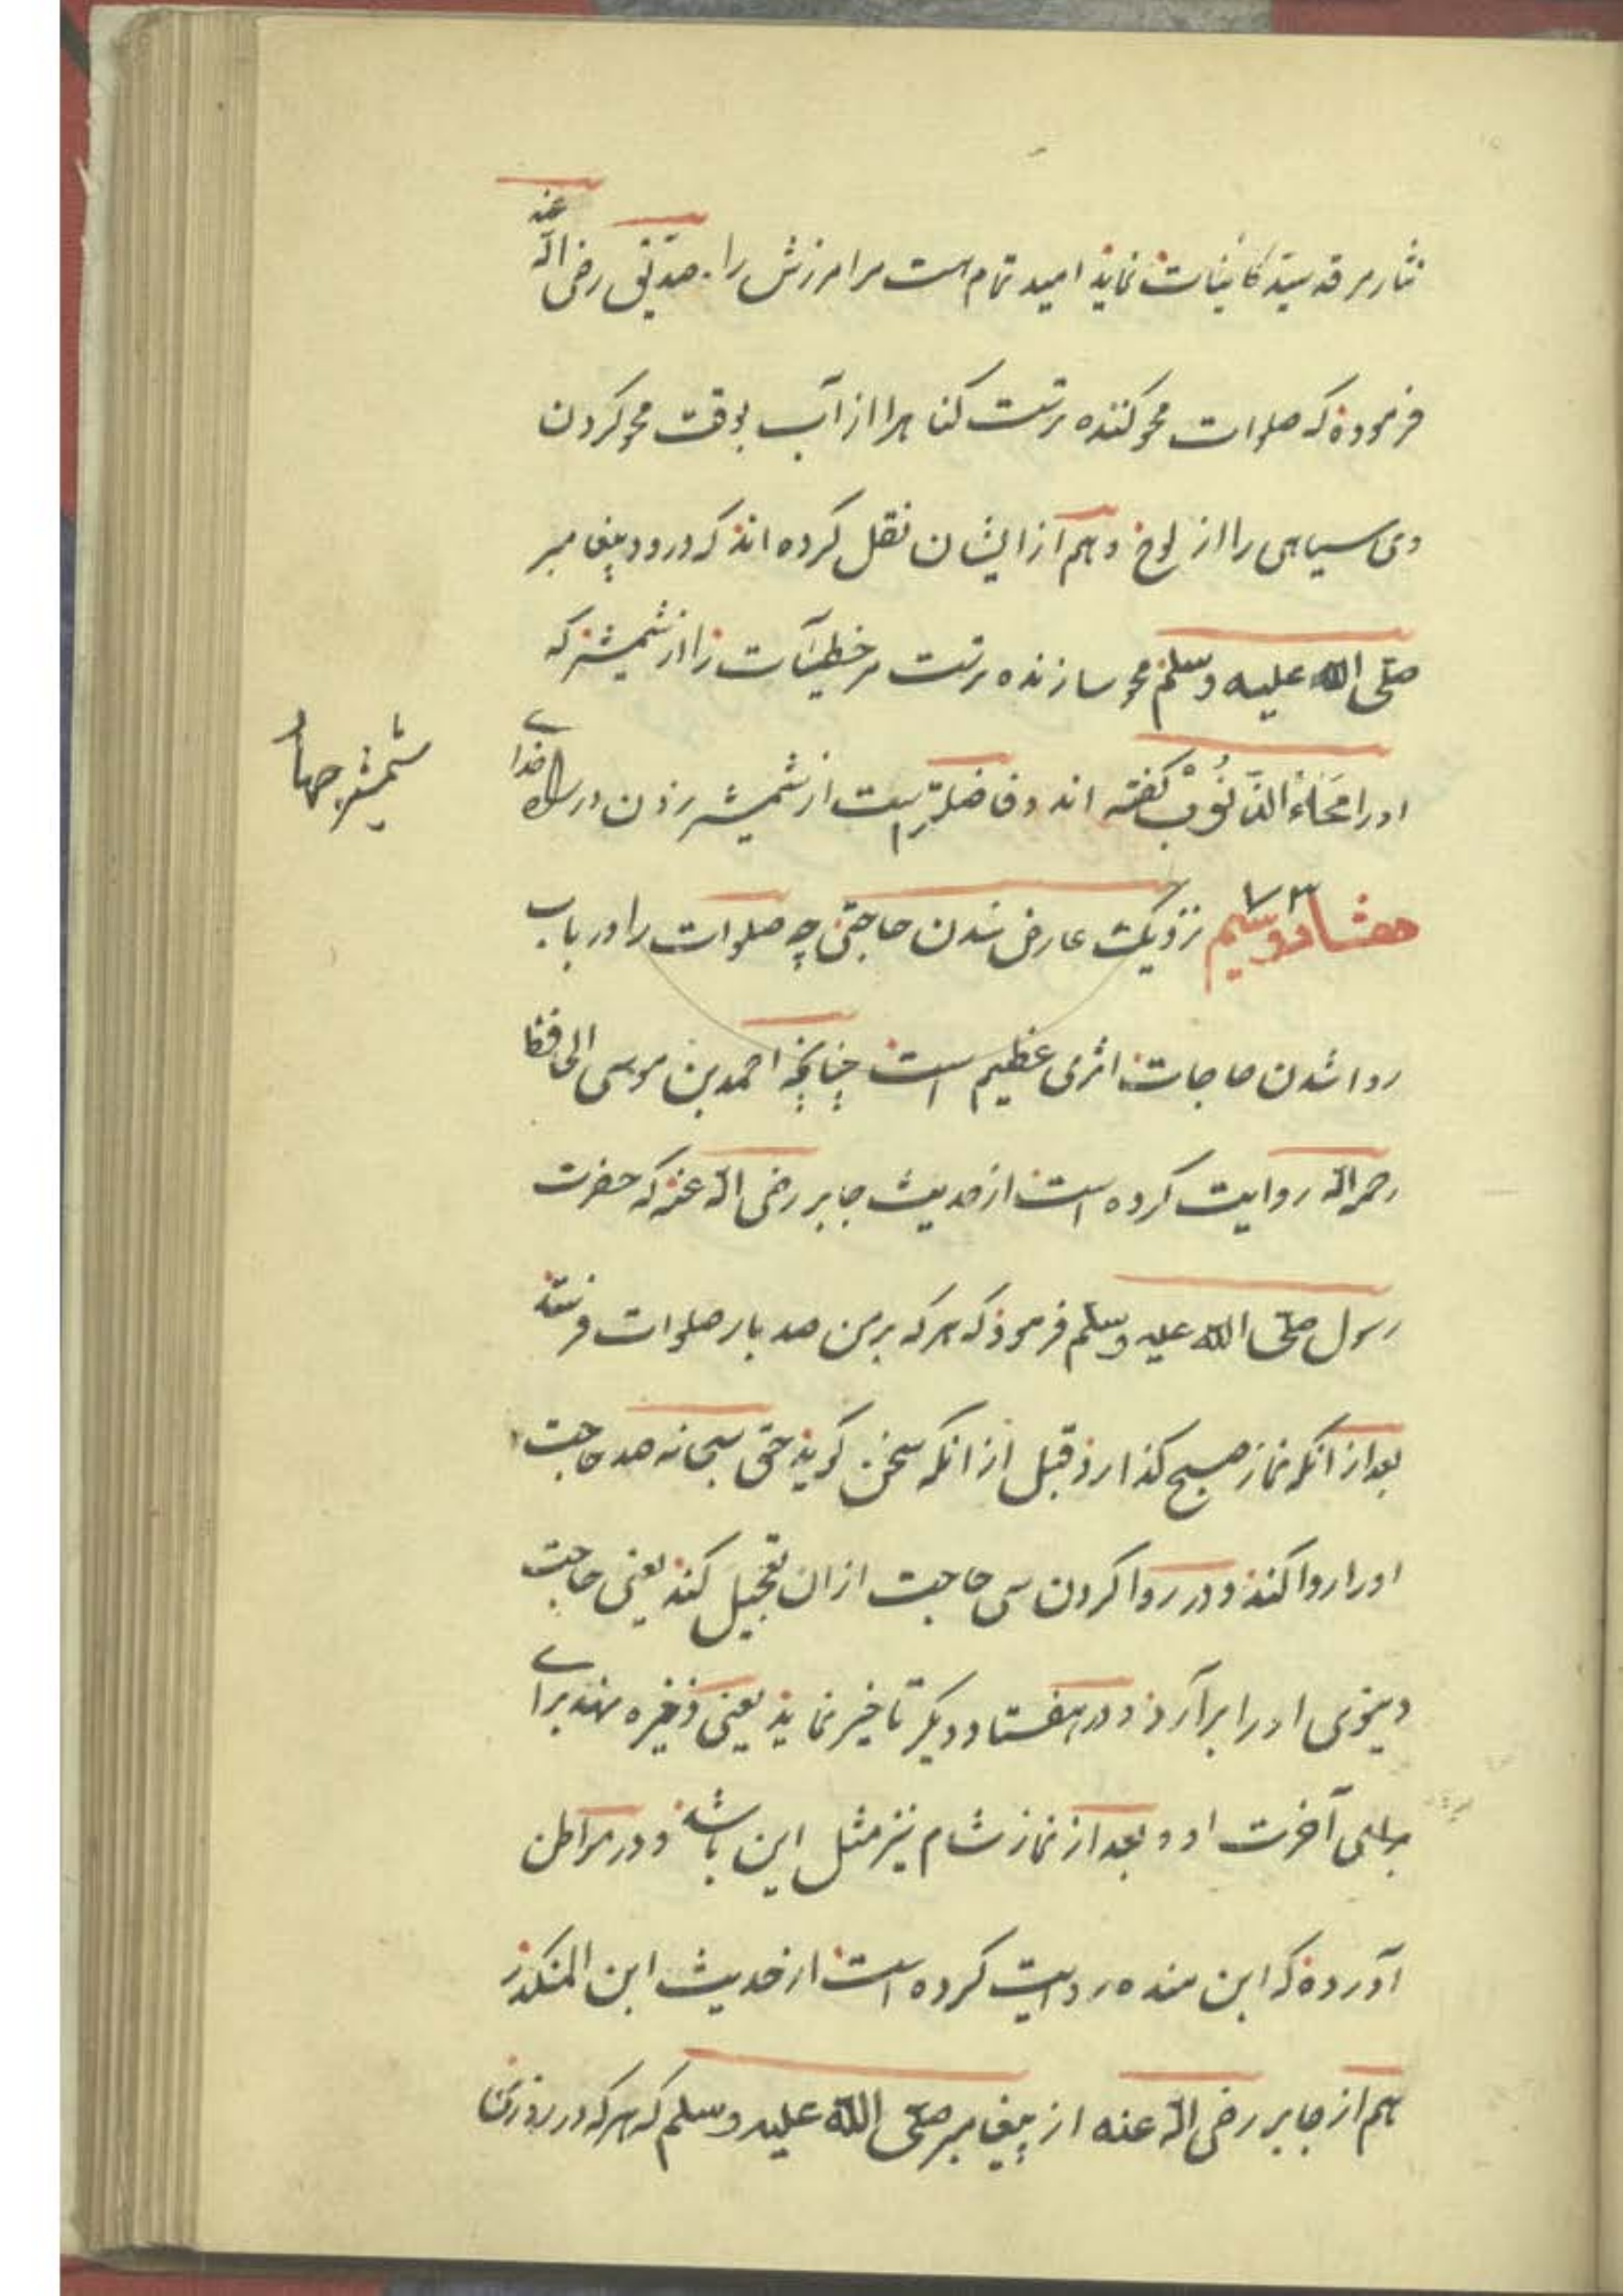 نثار مرقد سید کاینات نماید امید تمام است مر امرزش را صدیق رضی الله عنه
فرموده که صلوات محو کننده ترست کناهرا از آب بوقت محو کردن
وی سیاهی را از لوح و هم از ایشان نقل کرده اند که درود پیغامبر
صلی الله علیه وسلم محو سازنده ترست مر خطیآت را از شمیشر که
اورا مَحَّاءُ الذُّنُوبْ کفته اند و فاضلترست از شمیشر زدن در راه خدای
شمیشر جها
هفتاد و سیم ۷۳ نزدیک عارض شدن حاجتی چه صلوات را در باب
روا شدن حاجات اثری عظیم است چنانچه احمد بن موسی الحافظ
رحمه الله روایت کرده است از حدیث جابر رضی الله عنه که حضرت
رسول صلی الله علیه وسلم فرمود که هرکه بر من صد بار صلوات فرستد
بعد از انکه نماز صبح کذارد قبل از انکه سخن کوید حق سبحانه صد حاجت
اورا روا کند و در روا کردن سی حاجت ازان تعجیل کند یعنی حاجت
دنیوی اورا برآرد و در هفتاد دیکر تاخیر نماید یعنی ذخیره نهد برای
برای آخرت او و بعد از نماز شام نیز مثل این باشد و در مواطن
آورده که ابن منده روایت کرده است از حدیث ابن المنکدر
هم از جابر رضی الله عنه از پیغامبر صلی الله علیه وسلم که هرکه در روزی